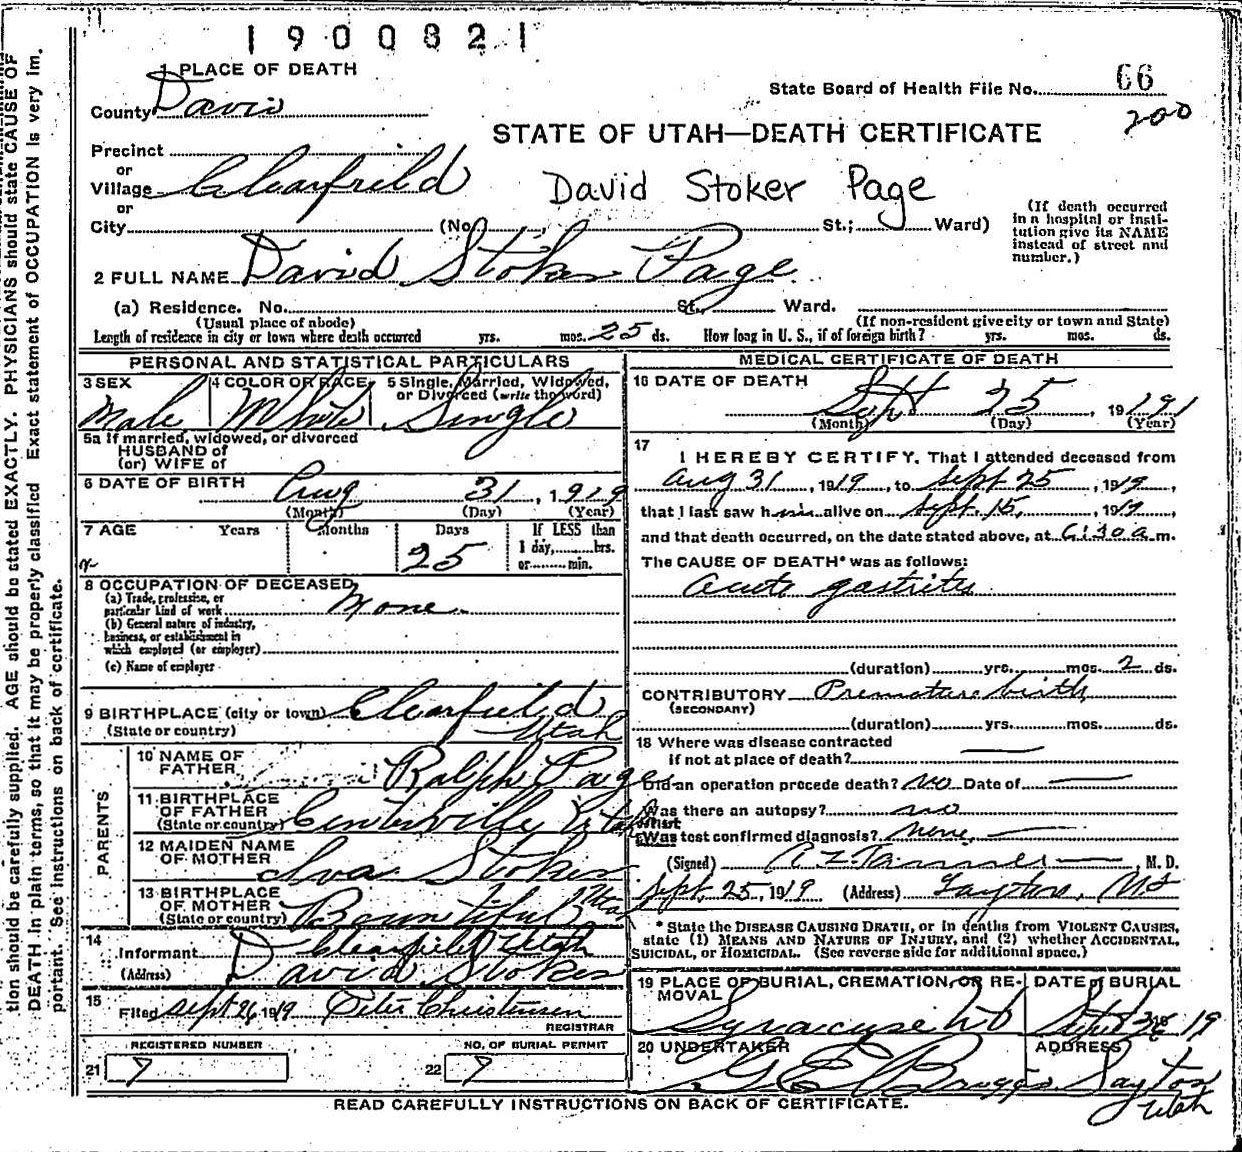 1900821
1 PLACE OF DEATH
County Davis
State Board of Health File No. 66
200
STATE OF UTAH—DEATH CERTIFICATE
Precinct
or
Village Clearfield
David Stoker Page
or
City (No. St.; Ward)
(If death occurred in a hospital or insti-
tution give its NAME
instead of street and
number.)
2 FULL NAME David Stoker Page
(a) Residence. No. St., Ward.
(Usual place of abode) (If non-resident give city or town and State)
Length of residence in city or town where death occurred yrs. mos. 25 ds. How long in U. S., if of foreign birth? yrs. mos. ds.
PERSONAL AND STATISTICAL PARTICULARS
3 SEX 4 COLOR OR RACE 5 Single, Married, Widowed,
or Divorced (write the word)
Male White Single
5a If married, widowed, or divorced
HUSBAND of
(or) WIFE of
6 DATE OF BIRTH Aug 31, 1919
(Month) (Day) (Year)
7 AGE Years Months Days If LESS than
1 day, hrs.
or min.
25
8 OCCUPATION OF DECEASED
(a) Trade, profession, or
particular kind of work None
(b) General nature of industry,
business, or establishment in
which employed (or employer)
(c) Name of employer
9 BIRTHPLACE (city or town) Clearfield
(State or country) Utah
PARENTS
10 NAME OF
FATHER Ralph Page
11 BIRTHPLACE
OF FATHER
(State or country) Centerville Utah
12 MAIDEN NAME
OF MOTHER Iva Stoker
13 BIRTHPLACE
OF MOTHER
(State or country) Bountiful Utah
14 Informant Clearfield Utah
(Address) David Stoker
15 Filed Sept 26, 1919 Peter Christensen
REGISTRAR
REGISTERED NUMBER NO. OF BURIAL PERMIT
21 7 22 7
MEDICAL CERTIFICATE OF DEATH
16 DATE OF DEATH
Sept 25, 19191
(Month) (Day) (Year)
17
I HEREBY CERTIFY, That I attended deceased from
Aug 31, 1919, to Sept 25, 1919,
that I last saw him alive on Sept. 15, 1919,
and that death occurred, on the date stated above, at 6:30 a.m.
The CAUSE OF DEATH* was as follows:
acute gastritis
(duration) yrs. mos. 2 ds.
CONTRIBUTORY Premature birth
(SECONDARY)
(duration) yrs. mos. ds.
18 Where was disease contracted
if not at place of death?
Did an operation precede death? no Date of
Was there an autopsy? no
What
Was test confirmed diagnosis? none
(Signed) A Z Tanner, M. D.
Sept. 25, 1919 (Address) Layton, Ut
* State the DISEASE CAUSING DEATH, or in deaths from VIOLENT CAUSES,
state (1) MEANS AND NATURE OF INJURY, and (2) whether ACCIDENTAL,
SUICIDAL, or HOMICIDAL. (See reverse side for additional space.)
19 PLACE OF BURIAL, CREMATION, OR RE-
MOVAL DATE of BURIAL
Syracuse Ut Sept 19
20 UNDERTAKER ADDRESS
G E Briggs Layton
Utah
READ CAREFULLY INSTRUCTIONS ON BACK OF CERTIFICATE.
tion should be carefully supplied. AGE should be stated EXACTLY. PHYSICIANS should state CAUSE OF
DEATH in plain terms, so that it may be properly classified Exact statement of OCCUPATION is very im.
portant. See instructions on back of certificate.